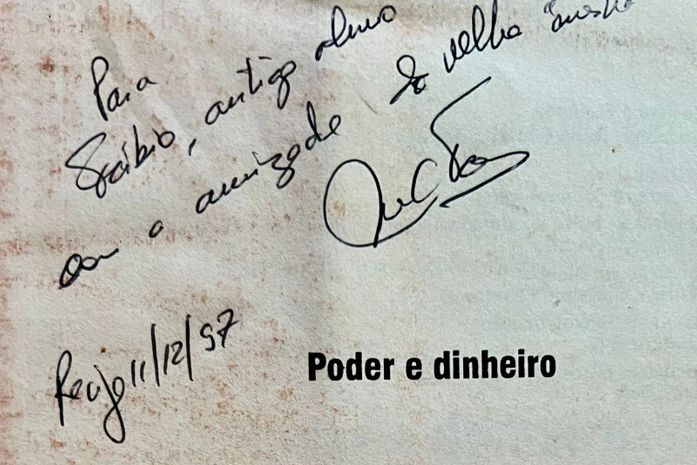 Para
Fábio, antigo aluno
com a amizade do velho mestre
Recife 11/12/97
Poder e dinheiro